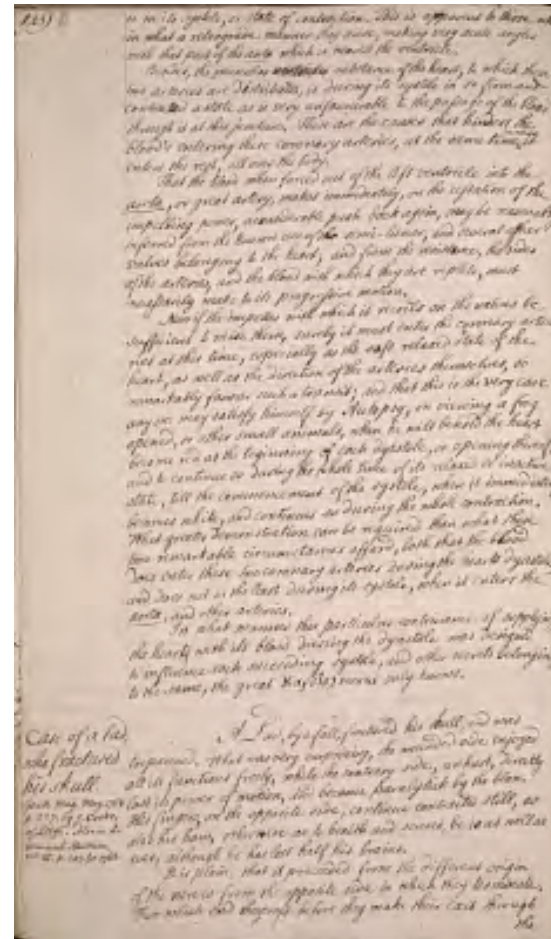 is in its systole, or state of contraction. This is apparent to those who
in what a retrograde manner they arise, making very acute angles
with that part of the aorta which is nearest the ventricle.
Besides, the substance of the heart, to which these
two arteries are distributed, is during its systole in so firm and
contracted a state as is very unfavourable to the passage of the blood
through it at this juncture. These are the causes that hinder the
blood's entering these coronary arteries, at the same time, it
enters the rest, all over the body.
That the blood when forced out of the left ventricle into the
aorta, or great artery, makes immediately, on the cessation of the
impelling power, a considerable push back again, may be
inferred from the known use of the semi-lunar, and several other
valves belonging to the heart; and from the resistance, the sides
of the arteries, and the blood with which they are replete, must
necessarily make to its progressive motion.
Now if the impetus with which it recoils on the valves be
sufficient to raise them, surely it must enter the coronary arte-
ries at this time, especially as the soft relaxed state of the
heart, as well as the direction of the arteries themselves, so
remarkably favour such a transit; and that this is the very case
any one may satisfy himself by Autopsy, on viewing a frog
opened, or other small animals, when he will behold the heart
become red at the beginning of each dyastole, or opening thereof
and to continue so during the whole time of its relaxed or inactive
state, till the commencement of the systole, when it immediately
becomes white, and continues so during the whole contraction.
What greater demonstration can be required than what these
two remarkable circumstances afford, both that the blood
does enter these two coronary arteries during the hearts dyastole
and does not in the least during its systole, when it enters the
aorta, and other arteries.
In what manner this particular contrivance of supplying
the heart, with its blood during the dyastole was designed
to influence each succeeding systole, and other secrets belonging
to the same, the great only knows.
Case of a lad
who fractured
his skull.
A Lad, by a fall, fractured his skull, and was
trepanned. What was very surprising, the wounded side enjoyed
all its functions freely, while the contrary side, unhurt, directly
lost its power of motion, and became paralytick by the blow.
His fingers, on the opposite side, continue contracted still, as
also his ham, otherwise as to health and senses, he is as well as
ever, although he has lost half his brains.
It is plain, that it proceeded from the different origin
of the nerves from the opposite side in which they terminate.
For which end they cross before they make their exit through
the